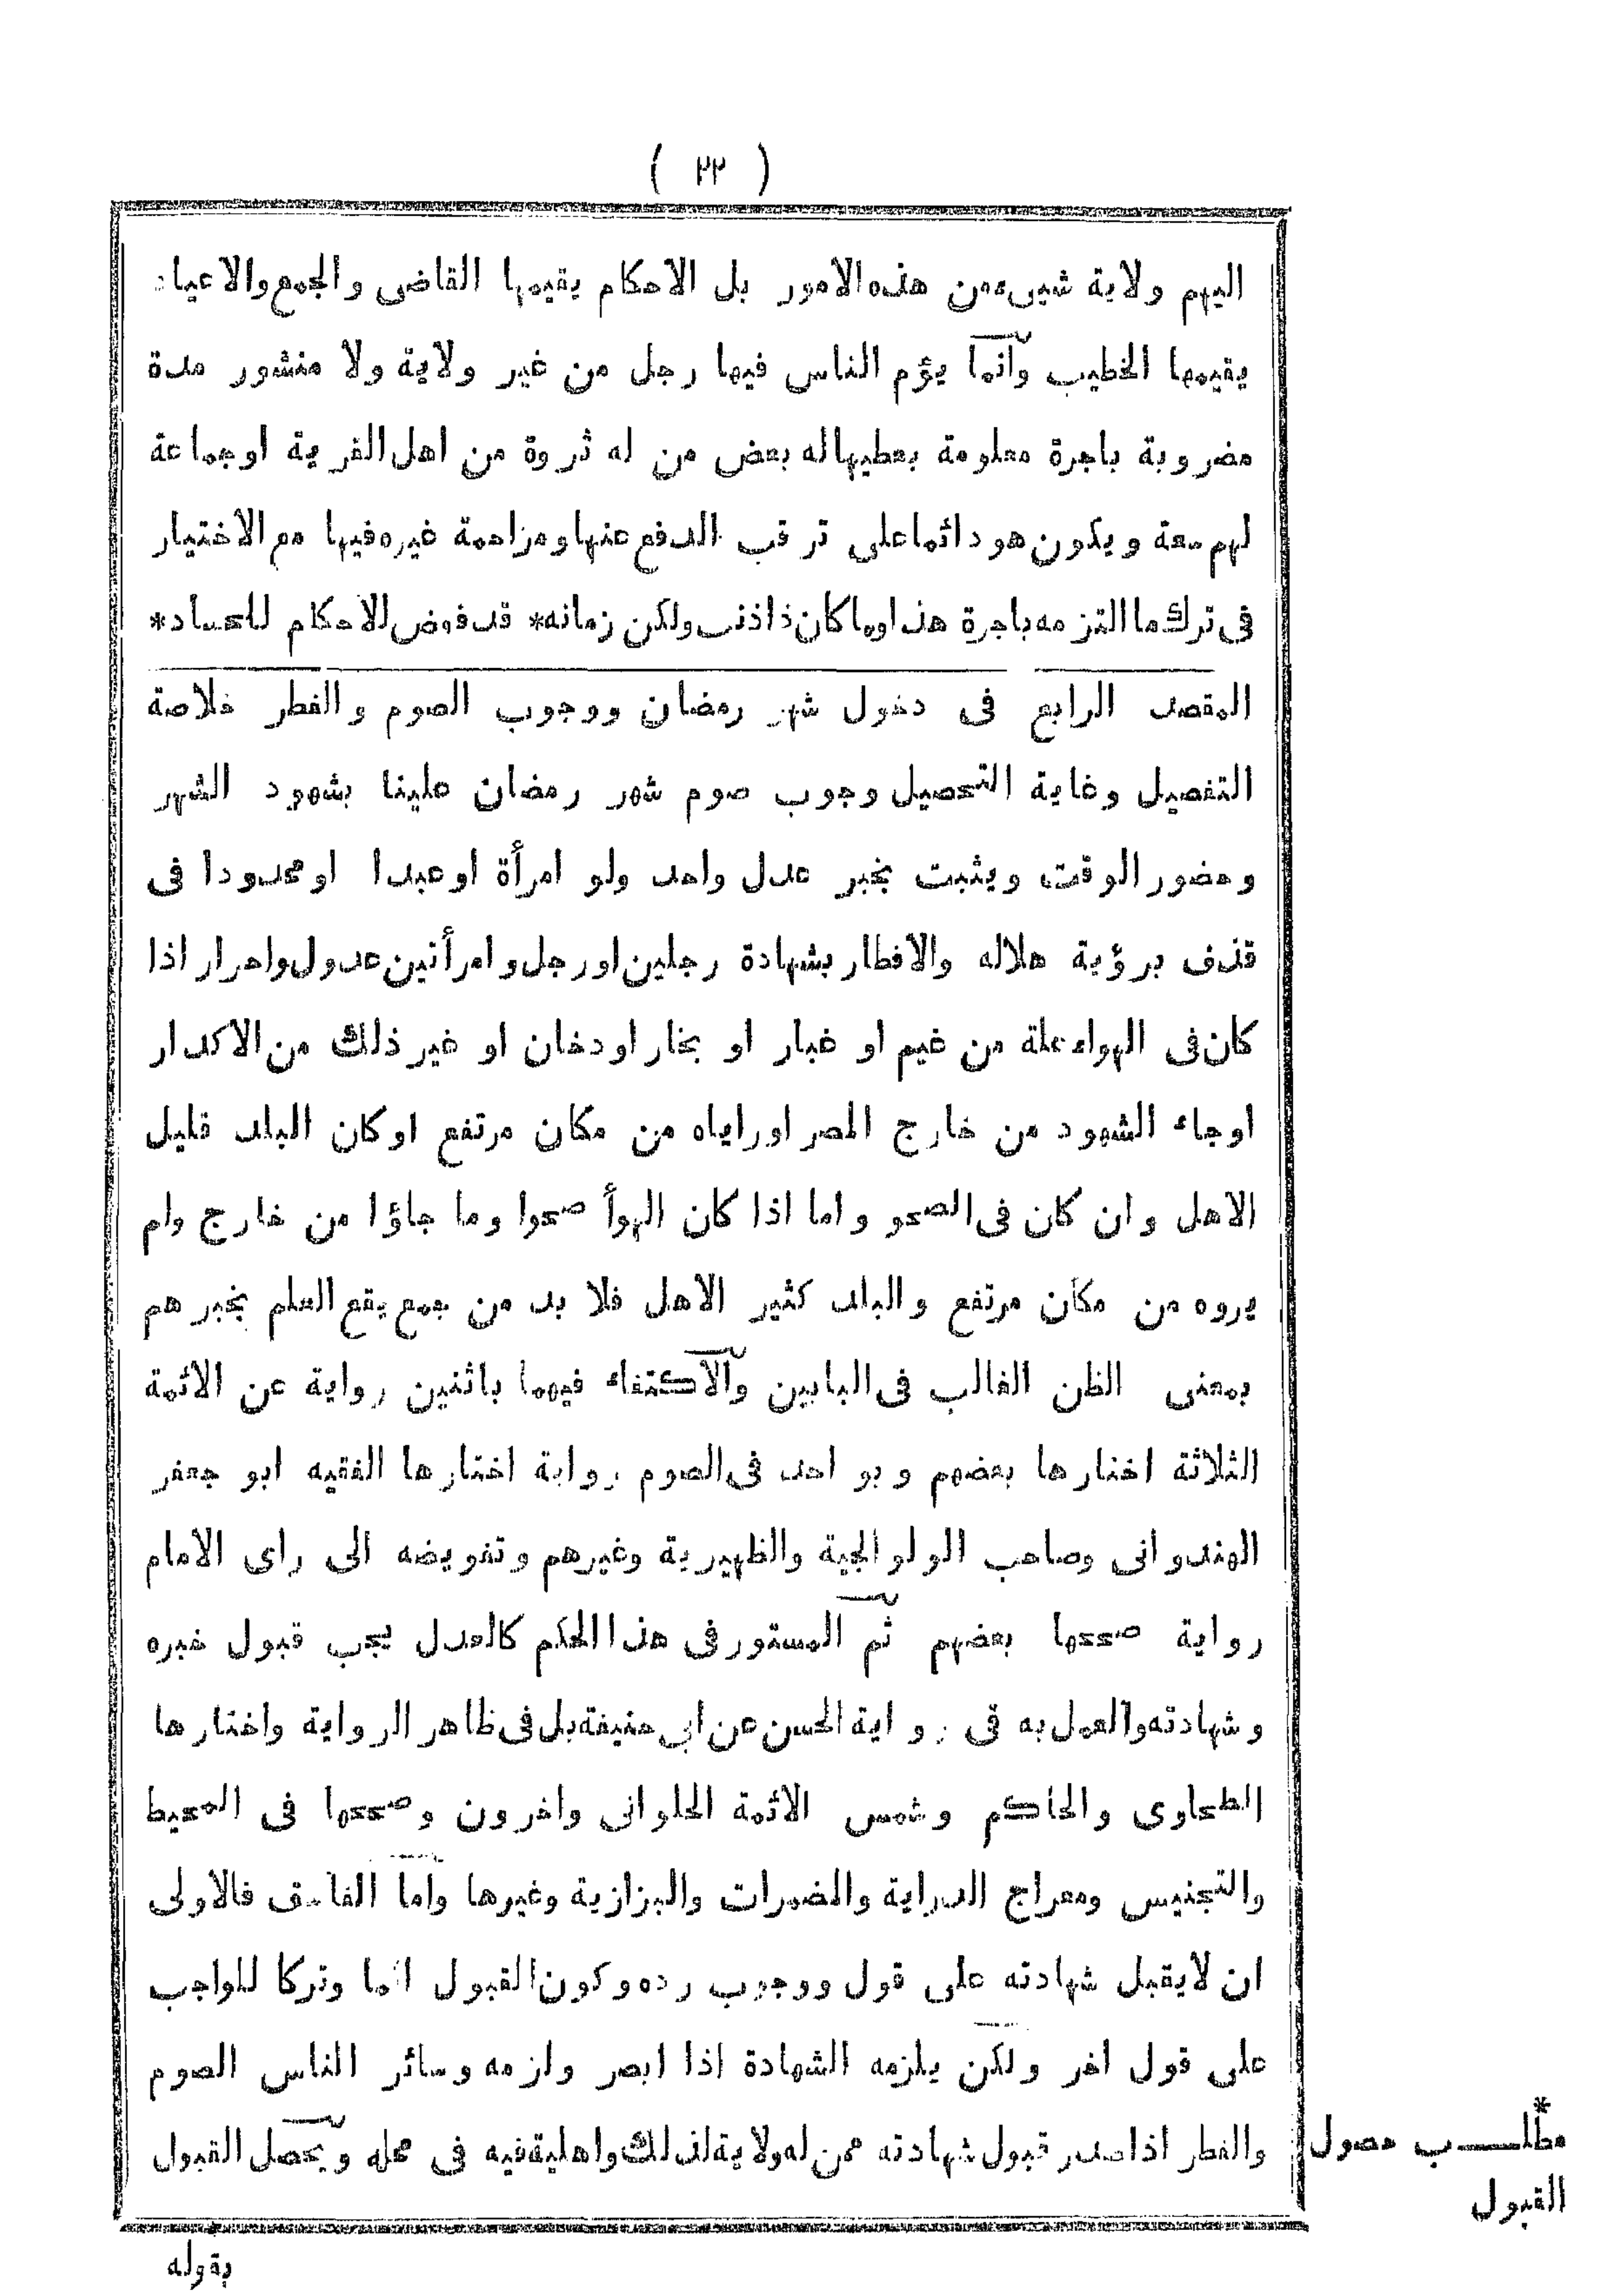 ( ٢٢ )
اليهم ولاية شيىء من هذه الامور بل الاحكام يقيمها القاضى والجمع والاعياد
يقيمها الخطيب وانما يؤم الناس فيها رجل من غير ولاية ولا منشور مدة
مضروبة باجرة معلومة يعطيها له بعض من له ثروة من اهل القرية او جماعة
لهم سعة ويكون هو دائما على ترقب الدفع عنها ومزاحمة غيره فيها مع الاختيار
فى ترك ما التزمه باجرة هذا وما كان ذا ذنب ولكن زمانه* قد فوض الاحكام للحساد*
المقصد الرابع فى دخول شهر رمضان ووجوب الصوم والفطر خلاصة
التفصيل وغاية التحصيل وجوب صوم شهر رمضان علينا بشهود الشهر
وحضور الوقت ويثبت بخبر عدل واحد ولو امرأة او عبدا او محدودا فى
قذف برؤية هلاله والافطار بشهادة رجلين او رجل وامرأتين عدول واحرار اذا
كان فى الهواء علة من غيم او غبار او بخار او دخان او غير ذلك من الاكدار
او جاء الشهود من خارج المصر او راياه من مكان مرتفع او كان البلد قليل
الاهل وان كان فى الصحو واما اذا كان الهوأ صحوا وما جاؤا من خارج ولم
يروه من مكان مرتفع والبلد كثير الاهل فلا بد من جمع يقع العلم بخبرهم
بمعنى الظن الغالب فى البابين والاكتفاء فيهما باثنين رواية عن الائمة
الثلاثة اختارها بعضهم وبواحد فى الصوم رواية اختارها الفقيه ابو جعفر
الهندوانى وصاحب الولوالجية والظهيرية وغيرهم وتفويضه الى راى الامام
رواية صححها بعضهم ثم المستور فى هذا الحكم كالعدل يجب قبول خبره
وشهادته والعمل به فى رواية الحسن عن ابي حنيفة بل فى ظاهر الرواية واختارها
الطحاوى والحاكم وشمس الائمة الحلوانى واخرون وصححها فى المحيط
والتجنيس ومعراج الدراية والمضمرات والبزازية وغيرها واما الفاسق فالاولى
ان لا يقبل شهادته على قول ووجوب رده وكون القبول اثما وتركا للواجب
على قول اخر ولكن يلزمه الشهادة اذا ابصر ولزمه وسائر الناس الصوم
والفطر اذا صدر قبول شهادته ممن له ولاية لذلك واهلية فيه فى محله ويحصل القبول
*
مطلب حصول
القبول
بقوله